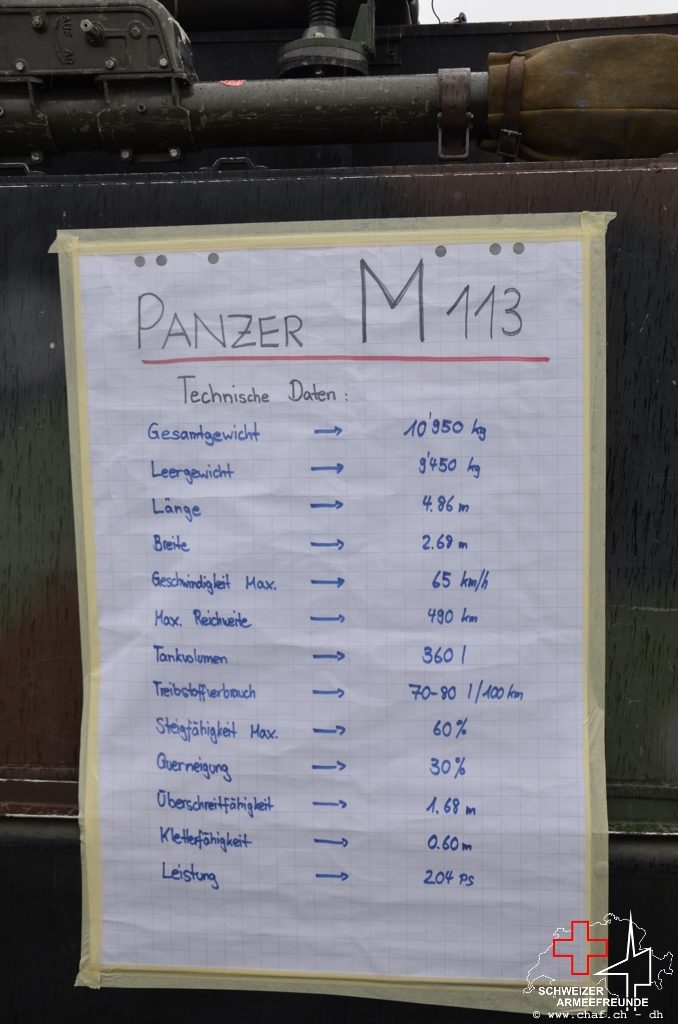 PANZER M 113
Technische Daten:
Gesamtgewicht → 10'950 kg
Leergewicht → 9'450 kg
Länge → 4.86 m
Breite → 2.68 m
Geschwindigkeit Max. → 65 km/h
Max. Reichweite → 490 km
Tankvolumen → 360 l
Treibstoffverbrauch → 70-80 l/100 km
Steigfähigkeit Max. → 60%
Querneigung → 30%
Überschreitfähigkeit → 1.68 m
Kletterfähigkeit → 0.60 m
Leistung → 204 PS
SCHWEIZER
ARMEEFREUNDE
© www.chaf.ch - dh